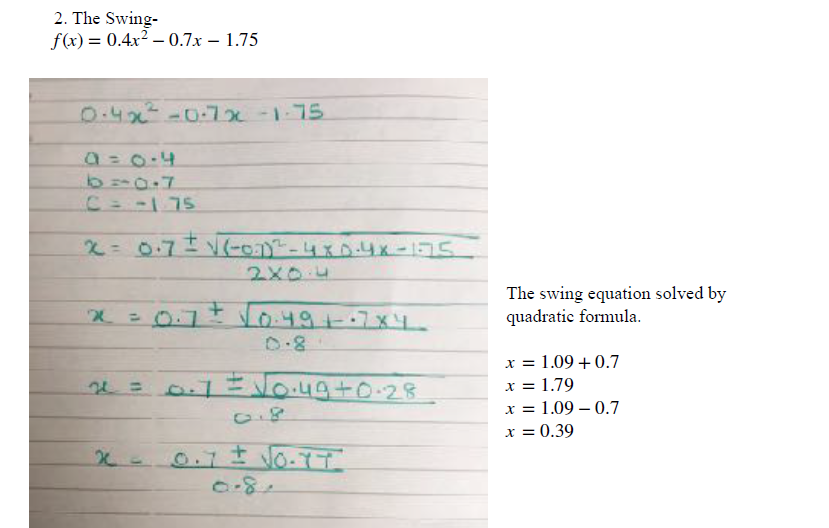 2. The Swing-
f(x) = 0.4x² – 0.7x – 1.75
0.4x² - 0.7x - 1.75
a = 0.4
b = -0.7
c = -1.75
x = 0.7 ± √(-0.7)² - 4 x 0.4 x -1.75
2 x 0.4
x = 0.7 ± √0.49 + .7 x 4
0.8
x = 0.7 ± √0.49 + 0.28
0.8
x = 0.7 ± √0.77
0.8
The swing equation solved by
quadratic formula.
x = 1.09 + 0.7
x = 1.79
x = 1.09 – 0.7
x = 0.39